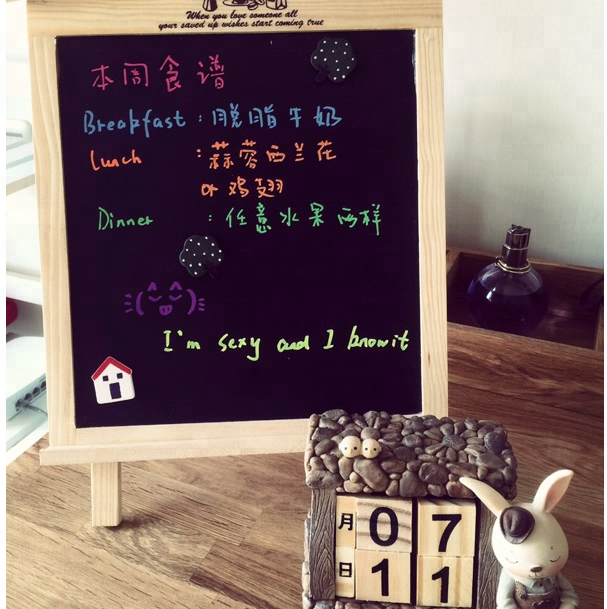 When you love someone all
your saved up wishes start coming true
本周食谱
Breakfast : 脱脂牛奶
Lunch : 蒜蓉西兰花
or 鸡翅
Dinner : 任意水果两样
I'm sexy and I know it
月 07
日 11